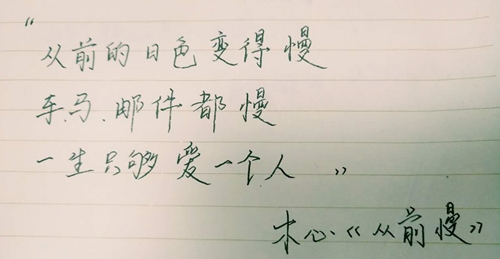 “
从前的日色变得慢
车.马.邮件都慢
一生只够爱一个人 ”
木心《从前慢》